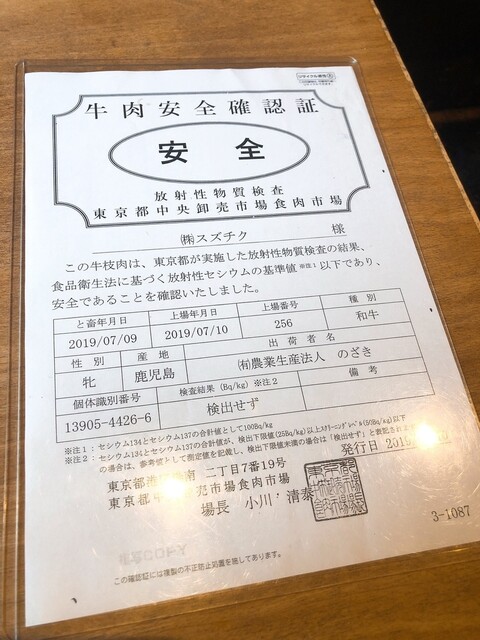 牛肉安全確認証
安全
放射性物質検査
東京都中央卸売市場食肉市場
㈱スズチク 様
この牛枝肉は、東京都が実施した放射性物質検査の結果、
食品衛生法に基づく放射性セシウムの基準値※注1以下であり、
安全であることを確認いたしました。
と畜年月日 上場年月日 上場番号 種別
2019/07/09 2019/07/10 256 和牛
性別 産地 出荷者名
牝 鹿児島 ㈲農業生産法人 のざき
個体識別番号 検査結果(Bq/kg)※注2 備考
13905-4426-6 検出せず
※注1：セシウム134とセシウム137の合計値として100Bq/kg
※注2：セシウム134とセシウム137の合計値が、検出下限値(25Bq/kg)以上スクリーニングレベル(50Bq/kg)以下
の場合は、参考値として測定値を記載し、検出下限値未満の場合は「検出せず」と表記され
発行日
東京都港 南 二丁目7番19号
東京都中 卸売市場食肉市場
場長 小川 清泰
3-1087
この確認証には複製の不正防止処置を施してあります。